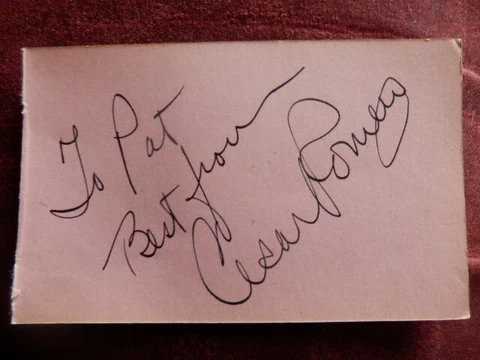 To Pat
Best from
Cesar Romero